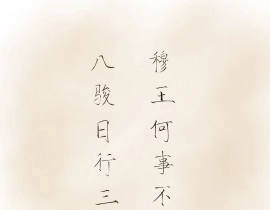 八骏日行三
穆王何事不